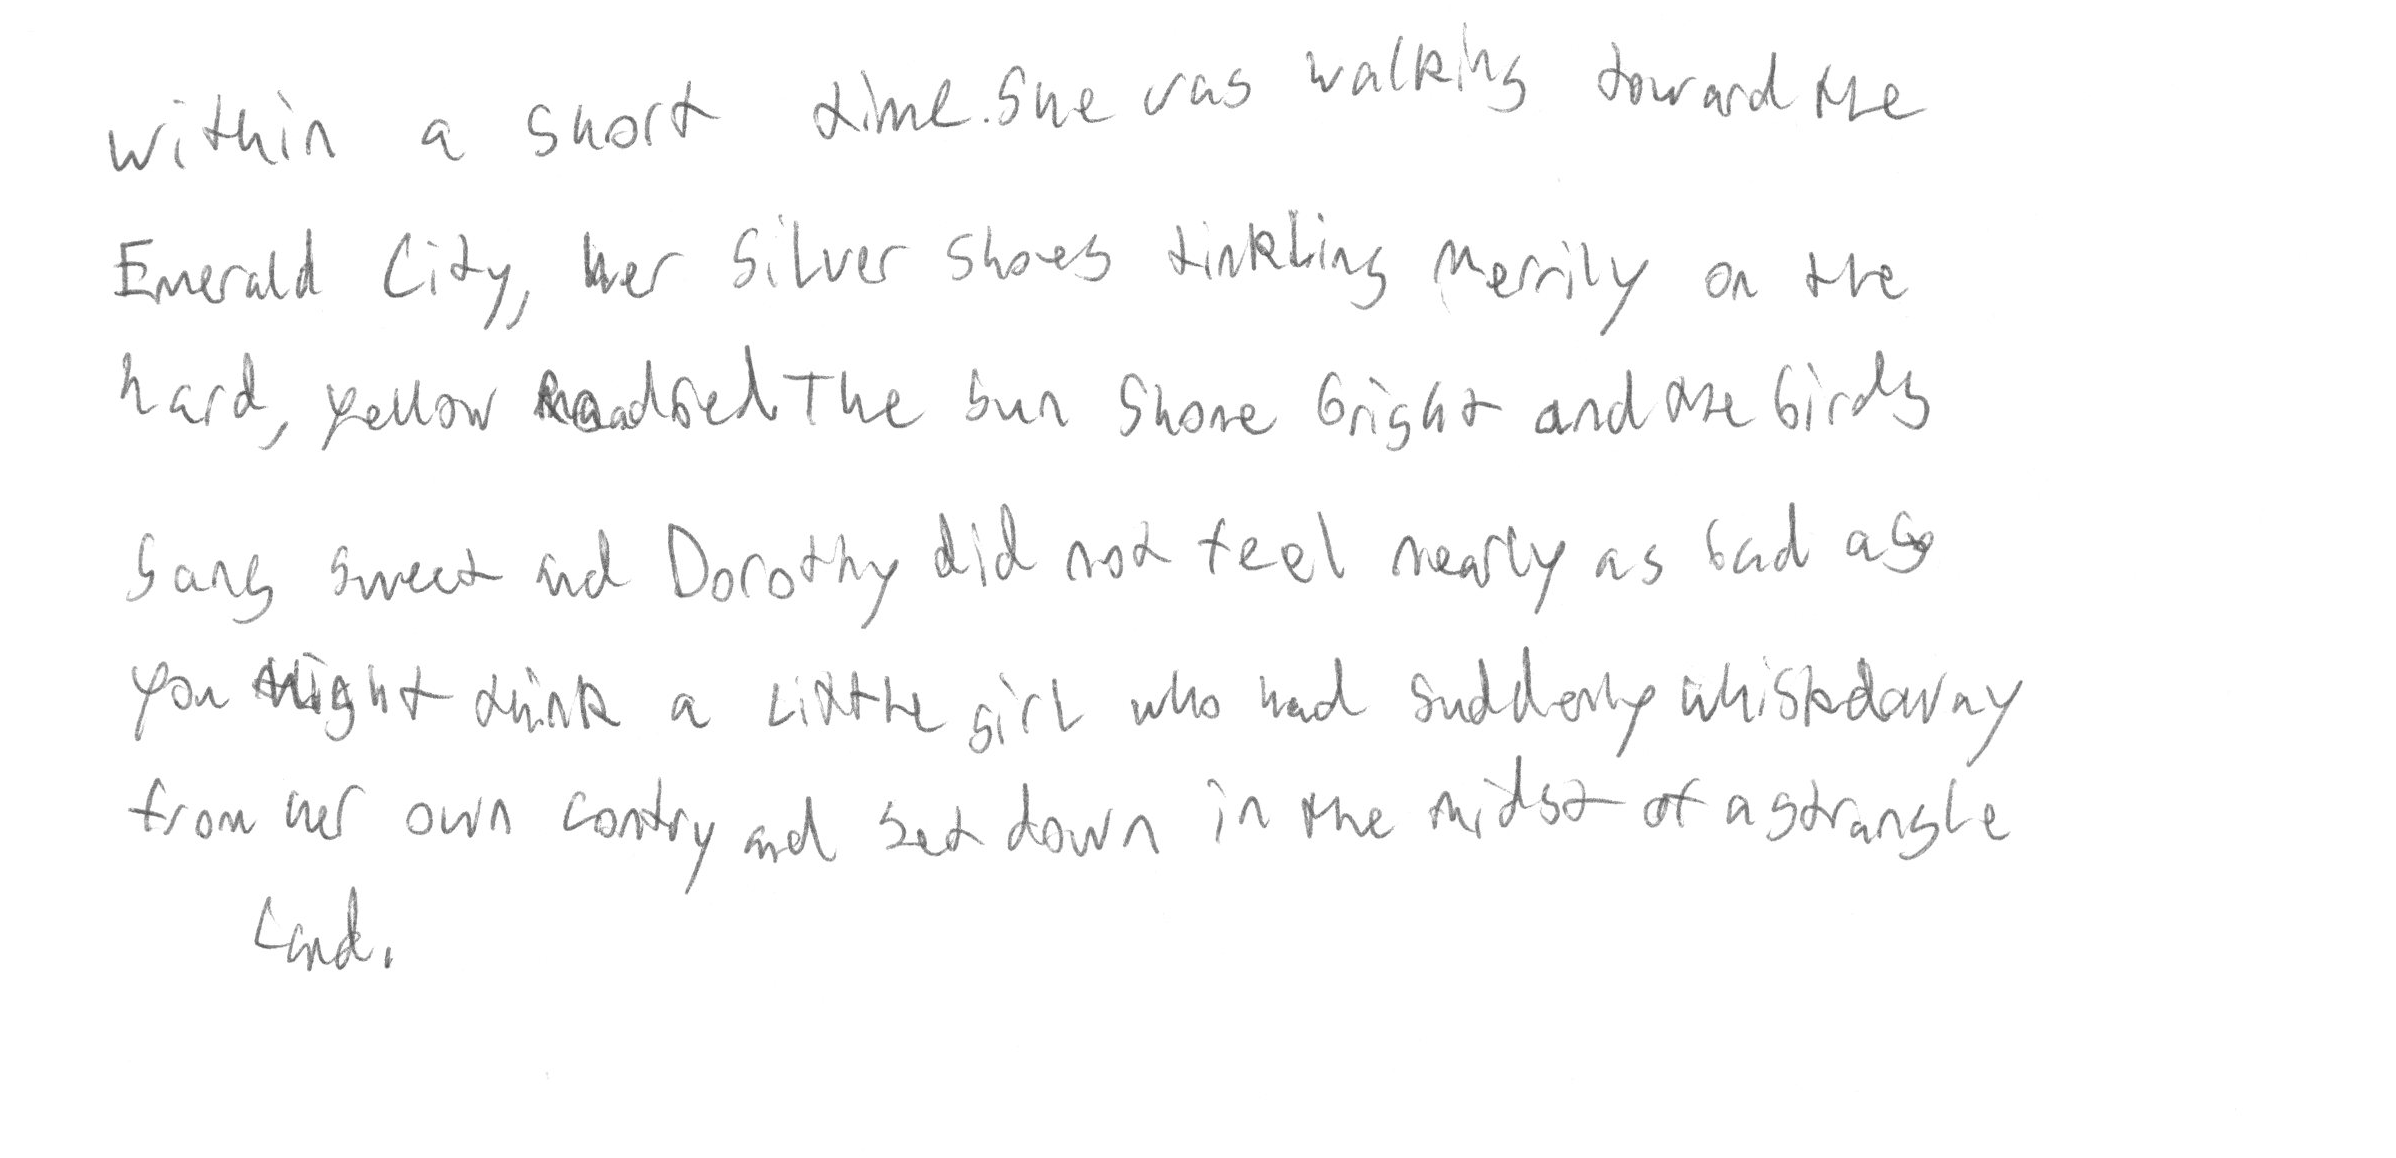 within a short time. She was walking toward the
Emerald City, her Silver Shoes tinkling merrily on the
hard, yellow roadbed The sun shone bright and the birds
sang sweet and Dorothy did not feel nearly as bad as
you might think a little girl who had suddenly whiskdaway
from her own contry and set down in the midst of a strangle
land.